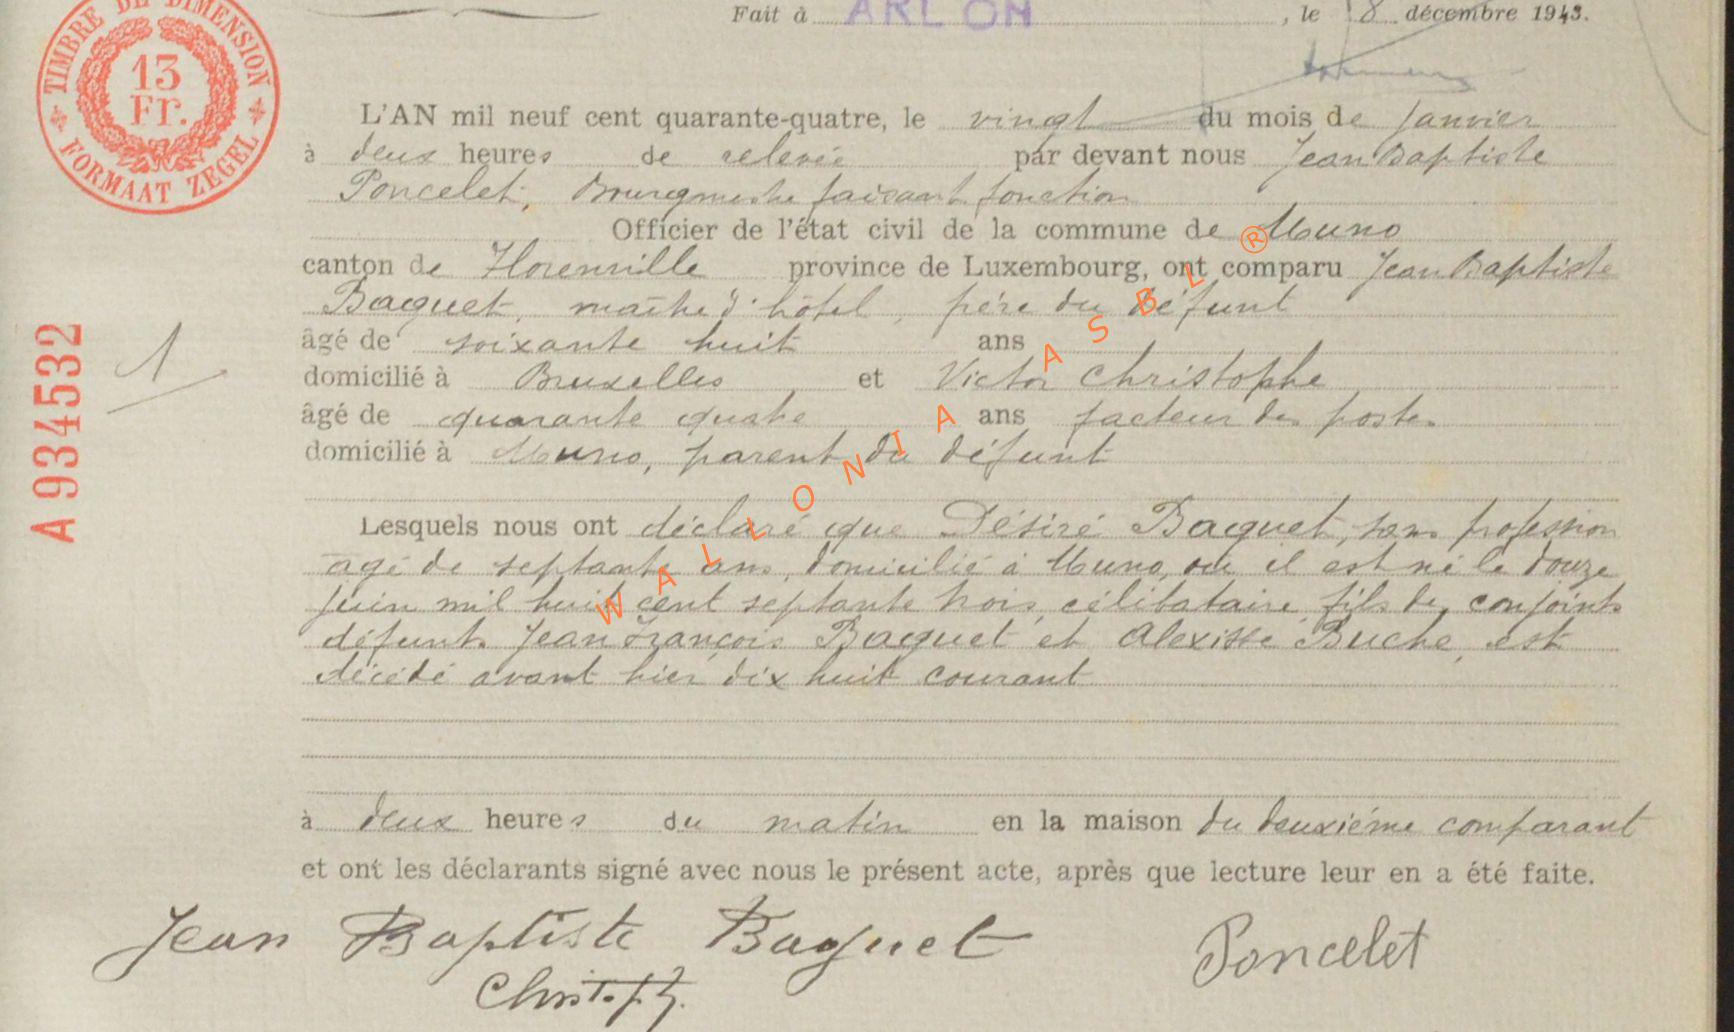 TIMBRE DE DIMENSION
13
Fr.
FORMAAT ZEGEL
Fait à ARLON, le 18 décembre 1943.
L'AN mil neuf cent quarante-quatre, le vingt du mois de Janvier
à deux heures de relevée par devant nous Jean Baptiste
Poncelet, Bourgmestre faisant fonction
Officier de l'état civil de la commune de Muno
canton de Florenville province de Luxembourg, ont comparu Jean Baptiste
Baquet, maître d'hôtel, frère du défunt
âgé de soixante huit ans
domicilié à Bruxelles et Victor Christophe
âgé de quarante quatre ans facteur des postes
domicilié à Muno, parent du défunt
A 934532
1
Lesquels nous ont déclaré que Désiré Baquet, sans profession
âgé de septante ans, domicilié à Muno, où il est né le douze
juin mil huit cent septante trois, célibataire, fils des conjoints
défunts Jean François Baquet et Alexisse Buche, est
décédé avant hier, dix huit courant
à deux heures du matin en la maison du deuxième comparant
et ont les déclarants signé avec nous le présent acte, après que lecture leur en a été faite.
Jean Baptiste Baquet
Poncelet
Christophe
WALLONIA ASBL ®